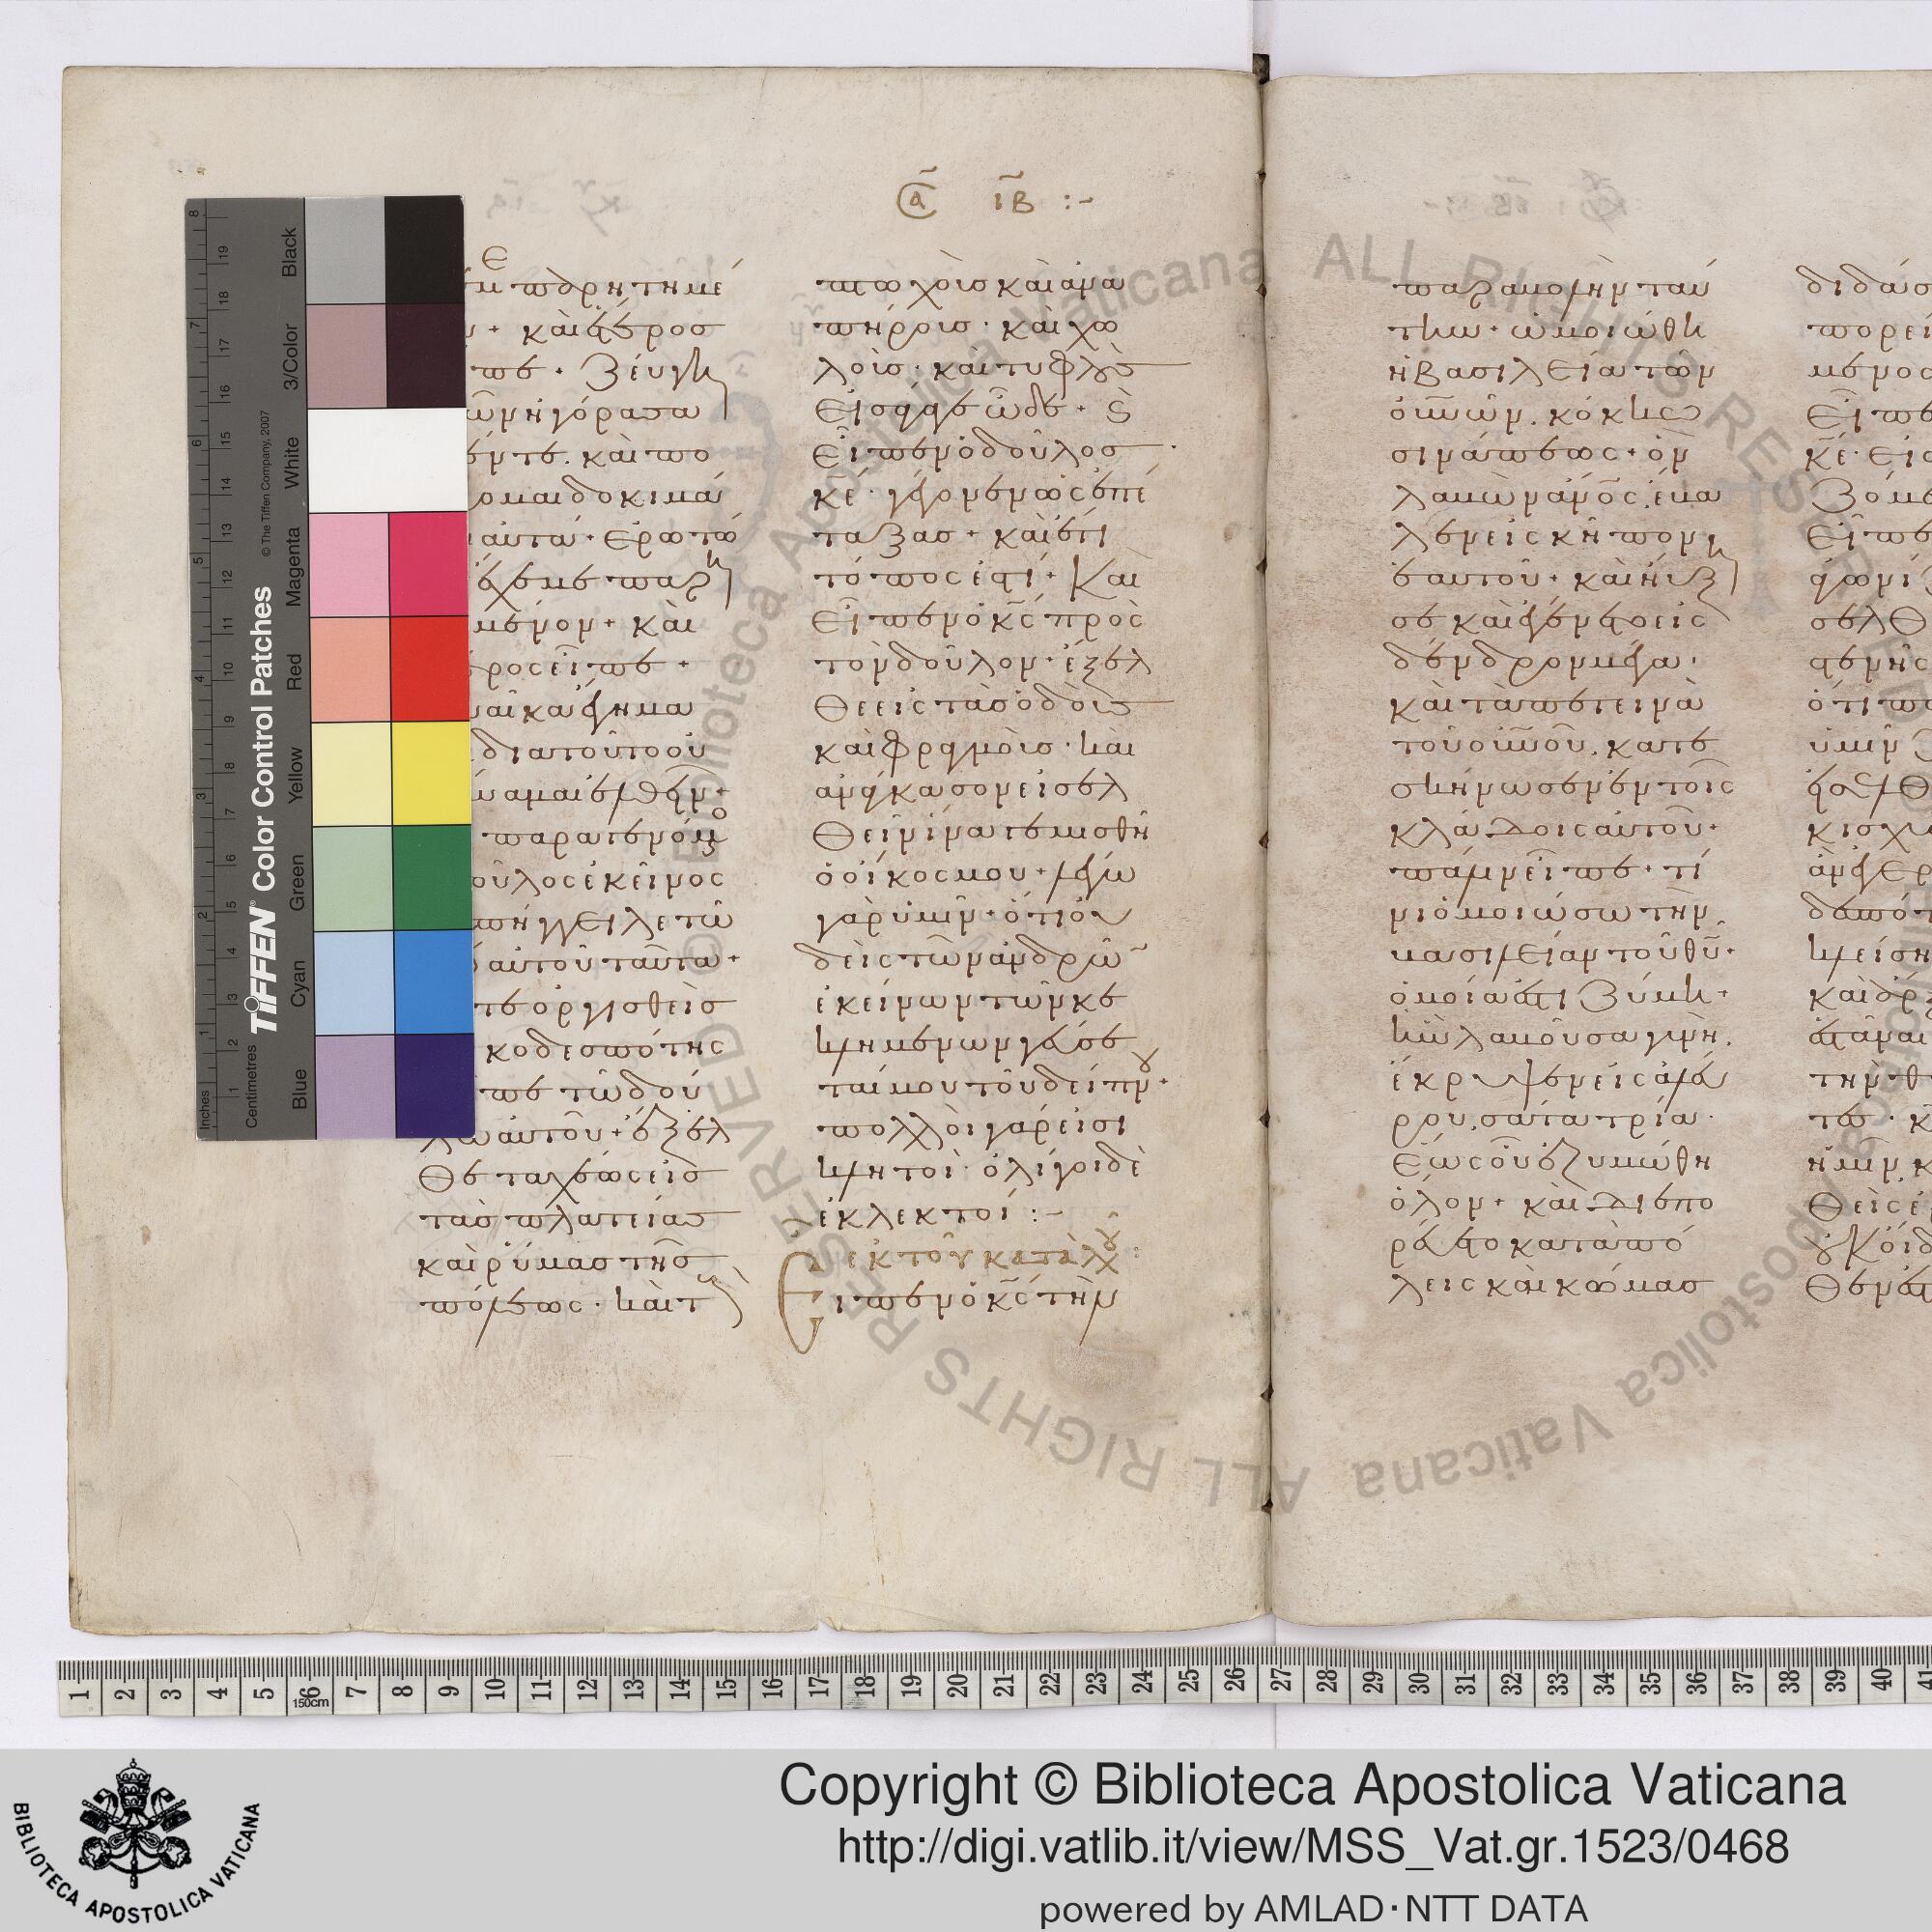 α̃ ιβ :-
ε
πορητημέ
+ καὶ ἕτερος
πε + ζεύγη
ῶν ἠγόρασα
έντε. καὶ πο
ομαι δοκιμά
αὐτά + ἐρωτῶ
ἔχε με παρη
μένον + καὶ
ρος εἶπε +
αῖκα ἔγημα
διατοῦτο οὐ
αμαι ἐλθεῖν +
παραγενόμ
οῦλος ἐκεῖνος
πήγγειλε τῶ
αὐτοῦ ταῦτα +
τε ὀργισθεὶς
κοδεσπότης
πε τῶ δού
λω αὐτοῦ + ἔξελ
θε ταχέως εἰς
τὰς πλατείας
καὶ ῥύμας τῆς
πόλεως · καὶ τ
πτωχοὺς καὶ ἀνα
πήρους · καὶ χω
λοὺς · καὶ τυφλοὺς
εἰσάγαγε ὧδε + S
εἶπεν ὁ δοῦλος
κε · γέγονεν ὡς ἐπέ
ταξας + καὶ ἔτι
τόπος ἐστί + Καὶ
εἶπεν ὁ κς πρὸς
τὸν δοῦλον · ἔξελ
θε εἰς τὰς ὁδοὺς
καὶ φραγμοὺς · καὶ
ἀνάγκασον εἰσελ
θεῖν ἵνα γεμισθῆ
ὁ οἶκος μου + λέγω
γὰρ ὑμῖν + ὅτι οὐ
δεὶς τῶν ἀνδρῶ
ἐκείνων τῶν κε
κλημένων γεύσε
ται μου τοῦ δείπνου +
πολλοὶ γάρ εἰσι
κλητοί · ὀλίγοι δὲ
ἐκλεκτοί :-
ἐκ τοῦ κατὰ λχ :
Εἶπεν ὁ κς τὴν
παραβολὴν ταύ
την + ὡμοιώθη
ἡ βασιλεία τῶν
οὐνῶν. κόκκω
σινάπεως + ὃν
λαβὼν ἄνος. ἔβα
λεν εἰς κῆπον
ἑαυτοῦ + καὶ ηὔξη
σε καὶ ἐγένετο εἰς
δένδρον μέγα ·
καὶ τὰ πετεινὰ
τοῦ οὐνοῦ. κατε
σκήνωσεν ἐν τοῖς
κλάδοις αὐτοῦ +
πάλιν εἶπε + τί
νι ὁμοιώσω τὴν
βασιλείαν τοῦ θυ +
ὁμοία ἐστὶ ζύμη +
ἣν λαβοῦσα γυνὴ.
ἔκρυψεν εἰς ἀλεύ
ρου. σάτα τρία ·
ἕως οὗ ἐζυμώθη
ὅλον + καὶ διεπο
ρεύετο κατὰ πό
λεις καὶ κώμας
διδάσ
πορεί
μενος
Εἶπε
κε · εἰ ο
ζόμε
εἶπε
ἀγωνί
σελθ
στενῆς
ὅτι πο
ὑμῖν ζ
εἰσελθ
κ ἰσχύ
ἀν ἐγερ
δεσπότ
κλείση
καὶ ἄρξ
ἑστάναι
τὴν θ
τω · κ
ἡμῖν κ
θεὶς ἐ
οὐκ οἶδ
θεν ἐσ
ALL RIGHTS RESERVED © Biblioteca Apostolica Vaticana
TIFFEN® Color Control Patches
© The Tiffen Company, 2007
Inches
Centimetres
Blue
Cyan
Green
Yellow
Red
Magenta
White
3/Color
Black
150cm
Copyright © Biblioteca Apostolica Vaticana
http://digi.vatlib.it/view/MSS_Vat.gr.1523/0468
powered by AMLAD·NTT DATA
BIBLIOTECA APOSTOLICA VATICANA